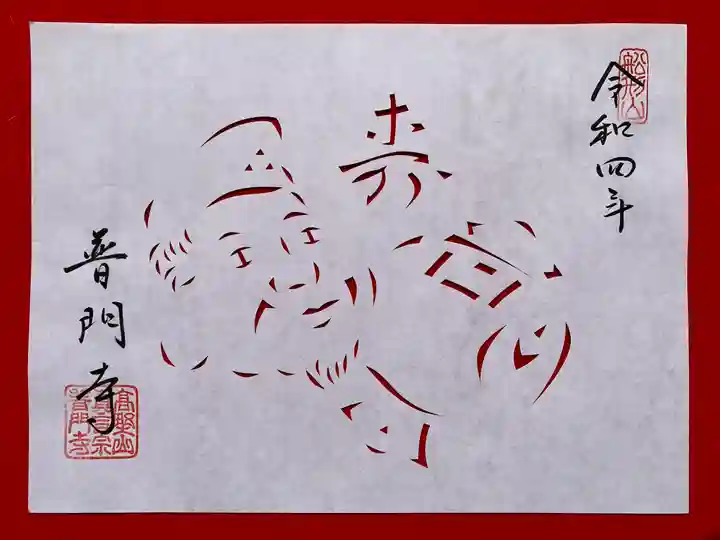 船形山
令和四年
寿
普門寺
高野山
真言宗
普門寺